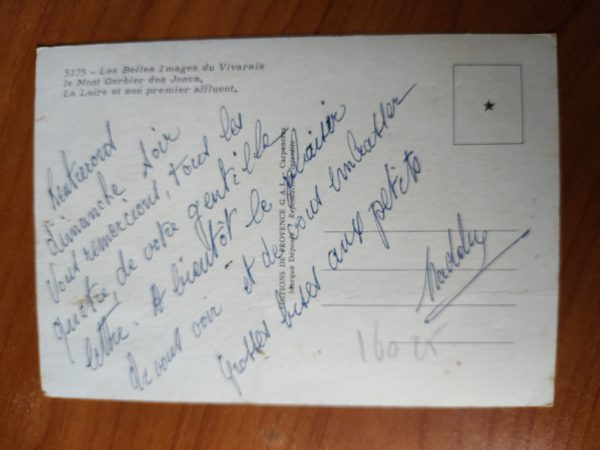 5175 - Les Belles Images du Vivarais
le Mont Gerbier des Joncs,
La Loire et son premier affluent.
dimanche soir
Vous remercions, tous les
quatre de votre gentille
lettre. A bientôt le plaisir
de vous voir et de vous embrasser
Grosses bises aux petits
EDITIONS DE PROVENCE G.A.L. Carpentras
Marque Déposée Reproduction interdite
160